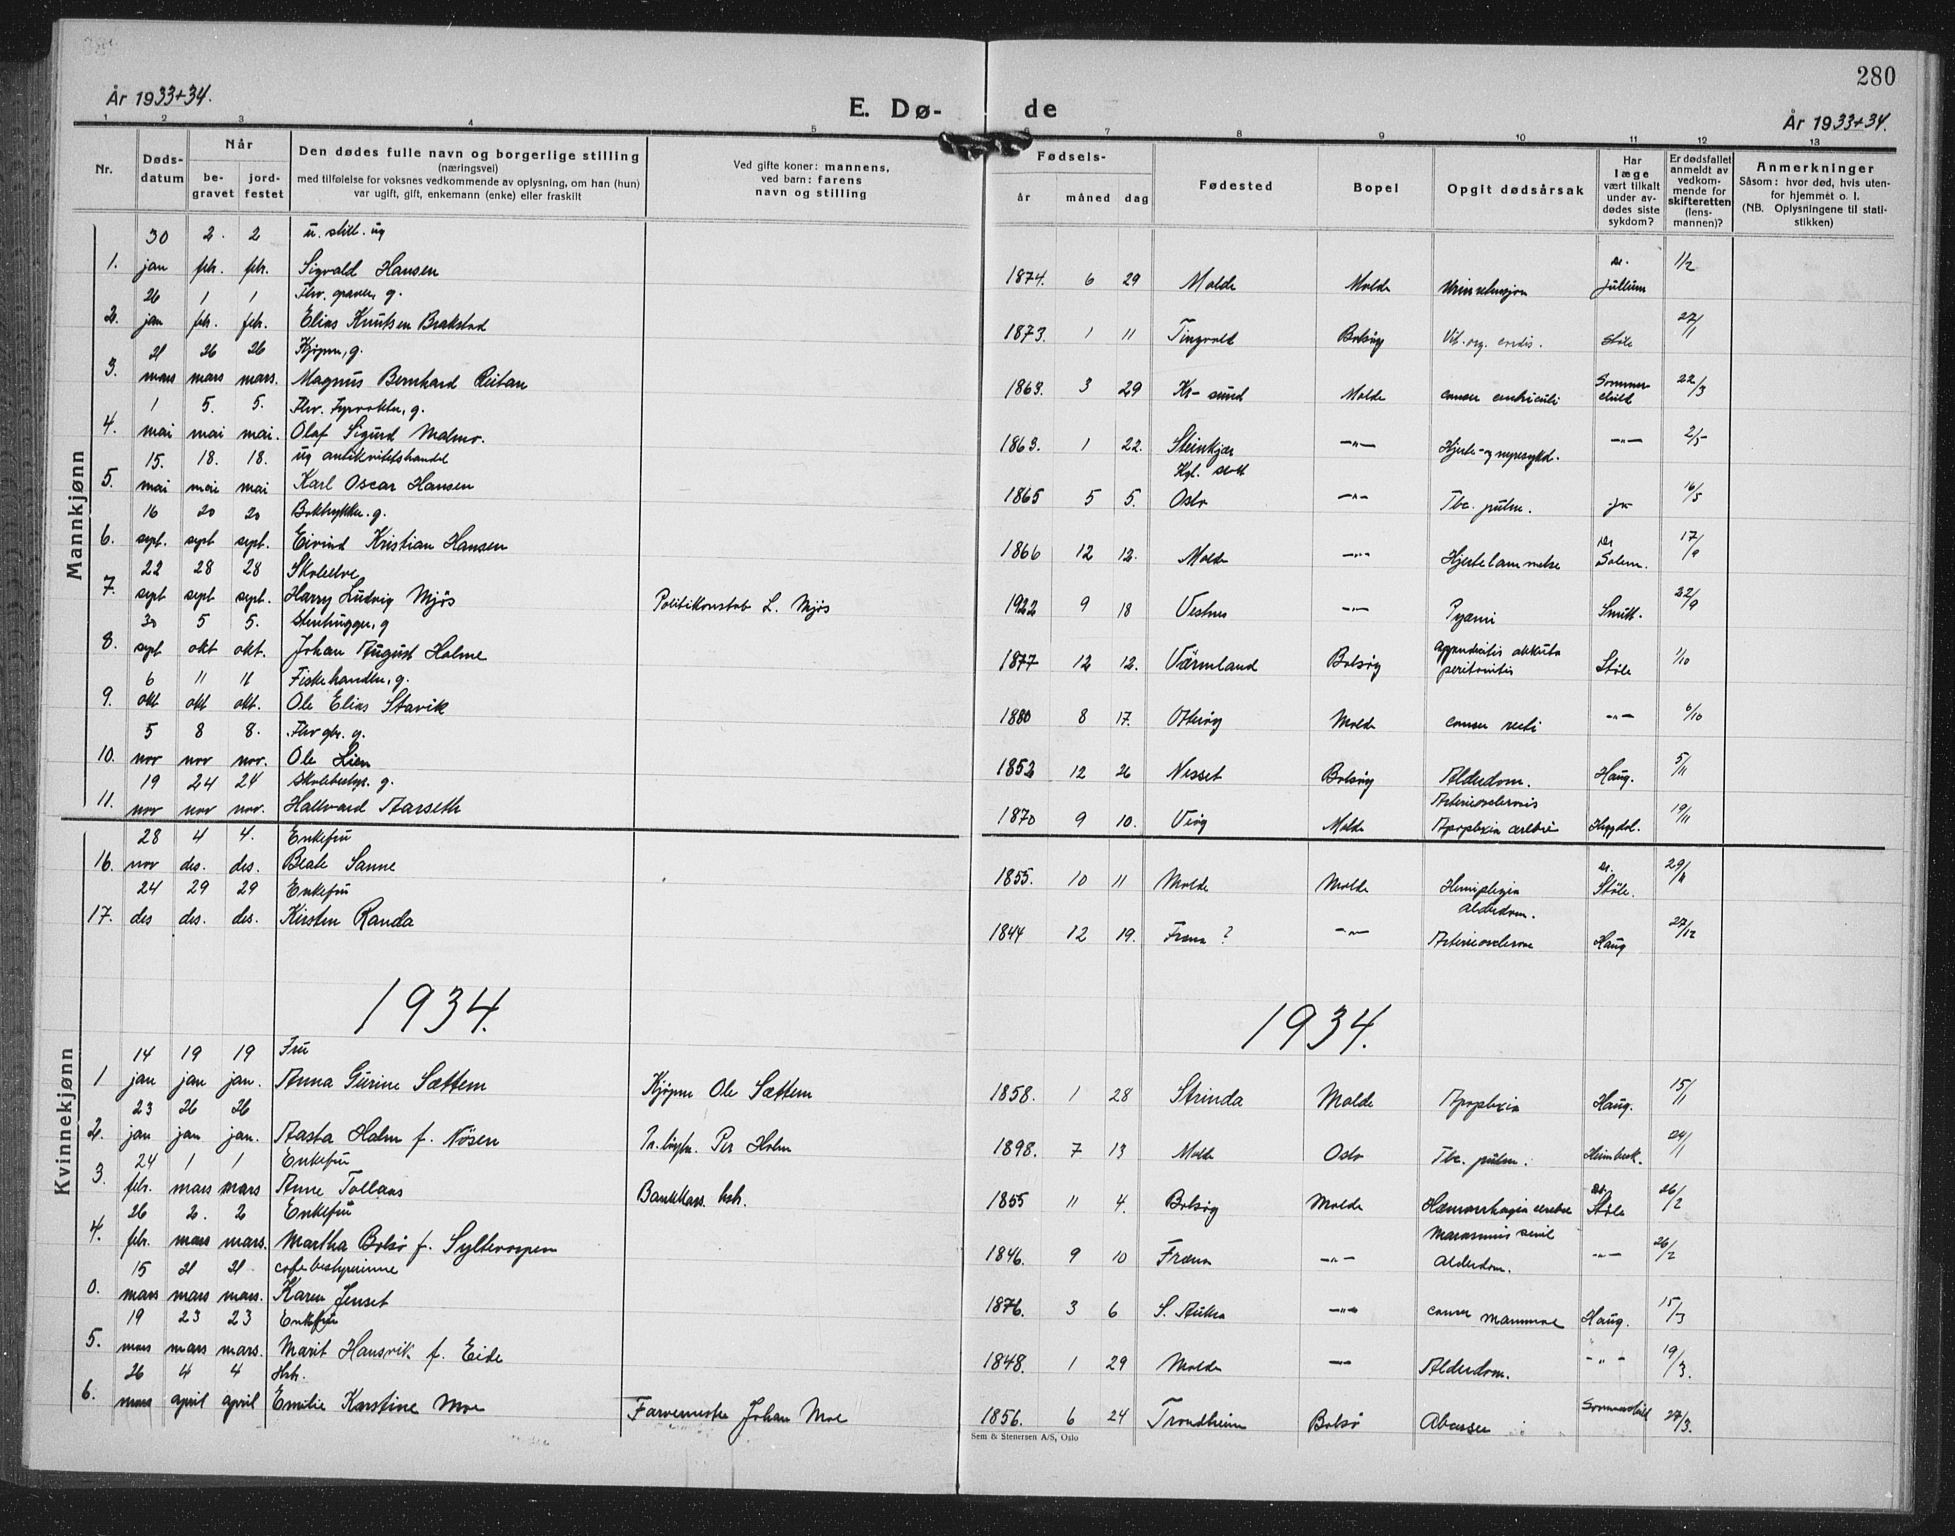 280
År 1933+34.
E. Dø- de
År 1933+34.
1 2 3 4 5 6 7 8 9 10 11 12 13
Nr.
Døds-
datum
Når
be-
gravet
jord-
festet
Den dødes fulle navn og borgerlige stilling
(næringsvei)
med tilføielse for voksnes vedkommende av oplysning, om han (hun)
var ugift, gift, enkemann (enke) eller fraskilt
Ved gifte koner: mannens,
ved barn: farens
navn og stilling
Fødsels-
år måned dag
Fødested
Bopel
Opgit dødsårsak
Har
læge
vært tilkalt
under av-
dødes siste
sykdom?
Er dødsfallet
anmeldt av
vedkom-
mende for
skifteretten
(lens-
mannen)?
Anmerkninger
Såsom: hvor død, hvis uten-
for hjemmet o. l.
(NB. Oplysningene til stati-
stikken)
Mannkjønn
30 2. 2 u. still. ug
1. jan feb. feb. Sigvald Hansen 1874. 6 29 Molde Molde Dr. Jullum 1/2
26 1 1 g.
2. jan feb. feb. Elias Knutsen Brakstad 1873. 1 11 Tingvold Bolsøy Støle 27/1
21 26 26 Kjøpm, g.
3. mars mars mars. Magnus Bernhard Reitan 1863. 3 29 Kr-sund Molde cancer ventriculi 22/3
1 5. 5. Fhv. Fyrvokter, g.
4. mai mai mai. Olaf Sigurd Malmo. 1863. 1 22. Steinkjær -"- Hjerte-og nyresykd. -"- 2/5
15. 18. 18. ug antikvitetshandel
5. mai mai mai Karl Oscar Hansen 1865 5 5. Kgl. slott Oslo -"- Tbc. pulm. ja 16/5
16 20 20 Boktrykker. g.
6. sept. sept sept. Eivind Kristian Hansen 1866 12 12. Molde -"- Hjertelammelse Dr Solem. 17/9
22 28 28 Skoleelev
7. sept sept sept. Harry Ludvig Mjøs Politikonstab L. Mjøs 1922 9 18 Vestnes -"- Pyæmi Smitt. 22/9
30 5 5. Stenhugger, g
8. sept okt okt. Johan August Holme 1877 12 12. Värmland Bolsøy appendicitis akkuta peritonitis Støle 1/10
6 11 11 Fiskehandler, g.
9. okt okt okt. Ole Elias Stavik 1880 8 17. Otterøy Molde cancer recti -"- 6/10
5 8 8. Fhv gbr. g.
10. nov nov nov. Ole Lien 1852 12 26 Nesset Bolsøy Alderdom. Haug. 5/11
19 24 24 Skolebestyr. g.
11. nov nov nov. Hallvard Aarseth 1870 9 10. Veøy Molde Arteriosclerosis Apoplexia cerebri 19/11
Kvinnekjønn
28 4 4. Enkefru
16. nov des. des. Beate Sanne 1855. 10 11 Molde Molde Hemiplegia Dr. Støle. 29/11
24 29 29 Enkefru
17. des des. des. Kirsten Randa 1844 12 19. Fræna ? -"- Alderdom. Arteriosclerose Haug 27/12
1934. 1934.
14 19 19 Fru
1 jan jan jan. Anna Gurine Sættem Kjøpm Ole Sættem 1858. 1 28 Strinda Molde Apoplexia Haug. 15/1
23 26 26
2. jan jan jan. Aasta Holm f. Nøsen Per Holm 1898. 7 13 Molde Oslo Tbc. pulm. Heimbeck. 24/1
24 1 1 Enkefru
3. feb. mars mars Anne Tollaas Bankkass. hstr. 1855 11 4. Bolsøy Molde Hæmorrhagia cerebri Dr. Støle 26/2
26 2. 2 Enkefru
4. feb. mars mars. Martha Bolsø f. Sylterospen 1846. 9 10 Fræna -"- Marasmus senil Alderdom. -"- 26/2
15 21 21 cafebestyrerinne
0. mars mars mars. Karen Jenset 1876. 3 6 S. Aukra -"- cancer mammae Haug. 15/3
19 23 23 Enkefru
5. mars mars mars. Marit Hansvik f. Eide 1848. 1 29 Molde -"- Alderdom. -"- 19/3.
26 4 4 Hstr.
6. mars april april Emilie Karstine Moe Farvemester Johan Moe 1856. 6 24 Trondheim Bolsø Abscesser Sommerschild 27/3.
Sem & Stenersen A/S, Oslo